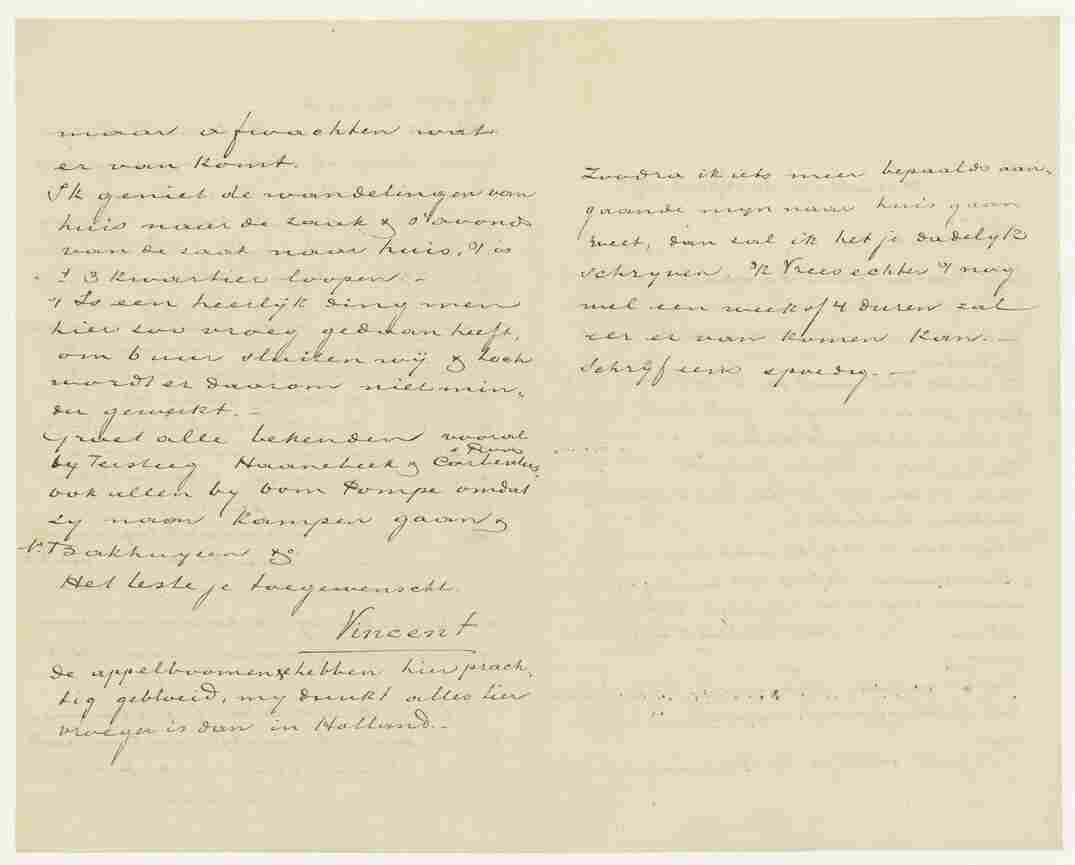 maar afwachten wat
er van komt.
Ik geniet de wandelingen van
huis naar de zaak & 's avonds
van de zaak naar huis, 't is
± 3 kwartier loopen. –
't Is een heerlijk ding men
hier zoo vroeg gedaan heeft,
om 6 uur sluiten wij & toch
wordt er daarom niet min-
der gewerkt. –
Groet alle bekenden vooral
by Tersteeg Haanebeek & Carbentus,
ook allen by oom Pompe omdat
zy naar Kampen gaan &
Bakhuyzen &c
Het beste je toegewenscht
Vincent
de appelboomen &c hebben hier prach-
tig gebloeid, my dunkt alles hier
vroeger is dan in Holland. –
Zoodra ik iets meer bepaalds aan-
gaande myn naar huis gaan
weet, dan zal ik het je dadelyk
schryven. Ik Vrees echter 't nog
wel een week of 4 duren zal
eer er van komen kan. –
Schryf eens spoedig. –